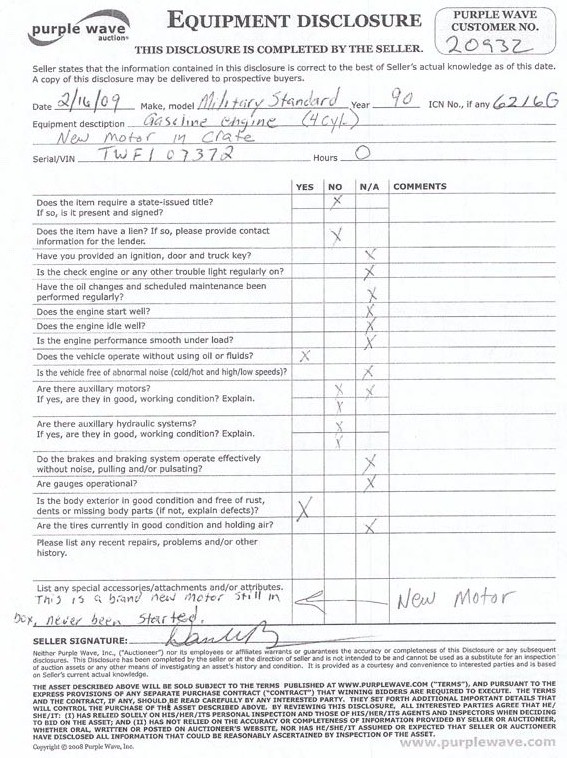 purple wave
auction
EQUIPMENT DISCLOSURE
THIS DISCLOSURE IS COMPLETED BY THE SELLER.
PURPLE WAVE
CUSTOMER NO.
20932
Seller states that the information contained in this disclosure is correct to the best of Seller's actual knowledge as of this date.
A copy of this disclosure may be delivered to prospective buyers.
Date 2/16/09 Make, model Military Standard Year 90 ICN No., if any 6216G
Equipment desctiption Gasoline engine (4cyl)
New Motor in Crate
Serial/VIN TWF107372 Hours 0
YES NO N/A COMMENTS
Does the item require a state-issued title? X
If so, is it present and signed?
Does the item have a lien? If so, please provide contact X
information for the lender.
Have you provided an ignition, door and truck key? X
Is the check engine or any other trouble light regularly on? X
Have the oil changes and scheduled maintenance been
performed regularly? X
Does the engine start well? X
Does the engine idle well? X
Is the engine performance smooth under load? X
Does the vehicle operate without using oil or fluids? X
Is the vehicle free of abnormal noise (cold/hot and high/low speeds)? X
Are there auxillary motors? X X
If yes, are they in good, working condition? Explain. X
Are there auxillary hydraulic systems? X
If yes, are they in good, working condition? Explain. X
Do the brakes and braking system operate effectively
without noise, pulling and/or pulsating? X
Are gauges operational? X
Is the body exterior in good condition and free of rust,
dents or missing body parts (if not, explain defects)? X
Are the tires currently in good condition and holding air? X
Please list any recent repairs, problems and/or other
history.
List any special accessories/attachments and/or attributes.
This is a brand new motor still in New Motor
box, never been started.
SELLER SIGNATURE:
Neither Purple Wave, Inc., ("Auctioneer") nor its employees or affiliates warrants or guarantees the accuracy or completeness of this Disclosure or any subsequent
disclosures. This Disclosure has been completed by the seller or at the direction of seller and is not intended to be and cannot be used as a substitute for an inspection
of auction assets or any other means of investigating an asset's history and condition. It is provided as a courtesy and convenience to interested parties and is based
on Seller's current actual knowledge.
THE ASSET DESCRIBED ABOVE WILL BE SOLD SUBJECT TO THE TERMS PUBLISHED AT WWW.PURPLEWAVE.COM ("TERMS"), AND PURSUANT TO THE
EXPRESS PROVISIONS OF ANY SEPARATE PURCHASE CONTRACT ("CONTRACT") THAT WINNING BIDDERS ARE REQUIRED TO EXECUTE. THE TERMS
AND THE CONTRACT, IF ANY, SHOULD BE READ CAREFULLY BY ANY INTERESTED PARTY. THEY SET FORTH ADDITIONAL IMPORTANT DETAILS THAT
WILL CONTROL THE PURCHASE OF THE ASSET DESCRIBED ABOVE. BY REVIEWING THIS DISCLOSURE, ALL INTERESTED PARTIES AGREE THAT HE/
SHE/IT: (I) HAS RELIED SOLELY ON HIS/HER/ITS PERSONAL INSPECTION AND THOSE OF HIS/HER/ITS AGENTS AND INSPECTORS WHEN DECIDING
TO BID ON THE ASSET; AND (II) HAS NOT RELIED ON THE ACCURACY OR COMPLETENESS OF INFORMATION PROVIDED BY SELLER OR AUCTIONEER,
WHETHER ORAL, WRITTEN OR POSTED ON AUCTIONEER'S WEBSITE, NOR HAS HE/SHE/IT ASSUMED OR EXPECTED THAT SELLER OR AUCTIONEER
HAVE DISCLOSED ALL INFORMATION THAT COULD BE REASONABLY ASCERTAINED BY INSPECTION OF THE ASSET.
Copyright © 2008 Purple Wave, Inc.
www.purplewave.com